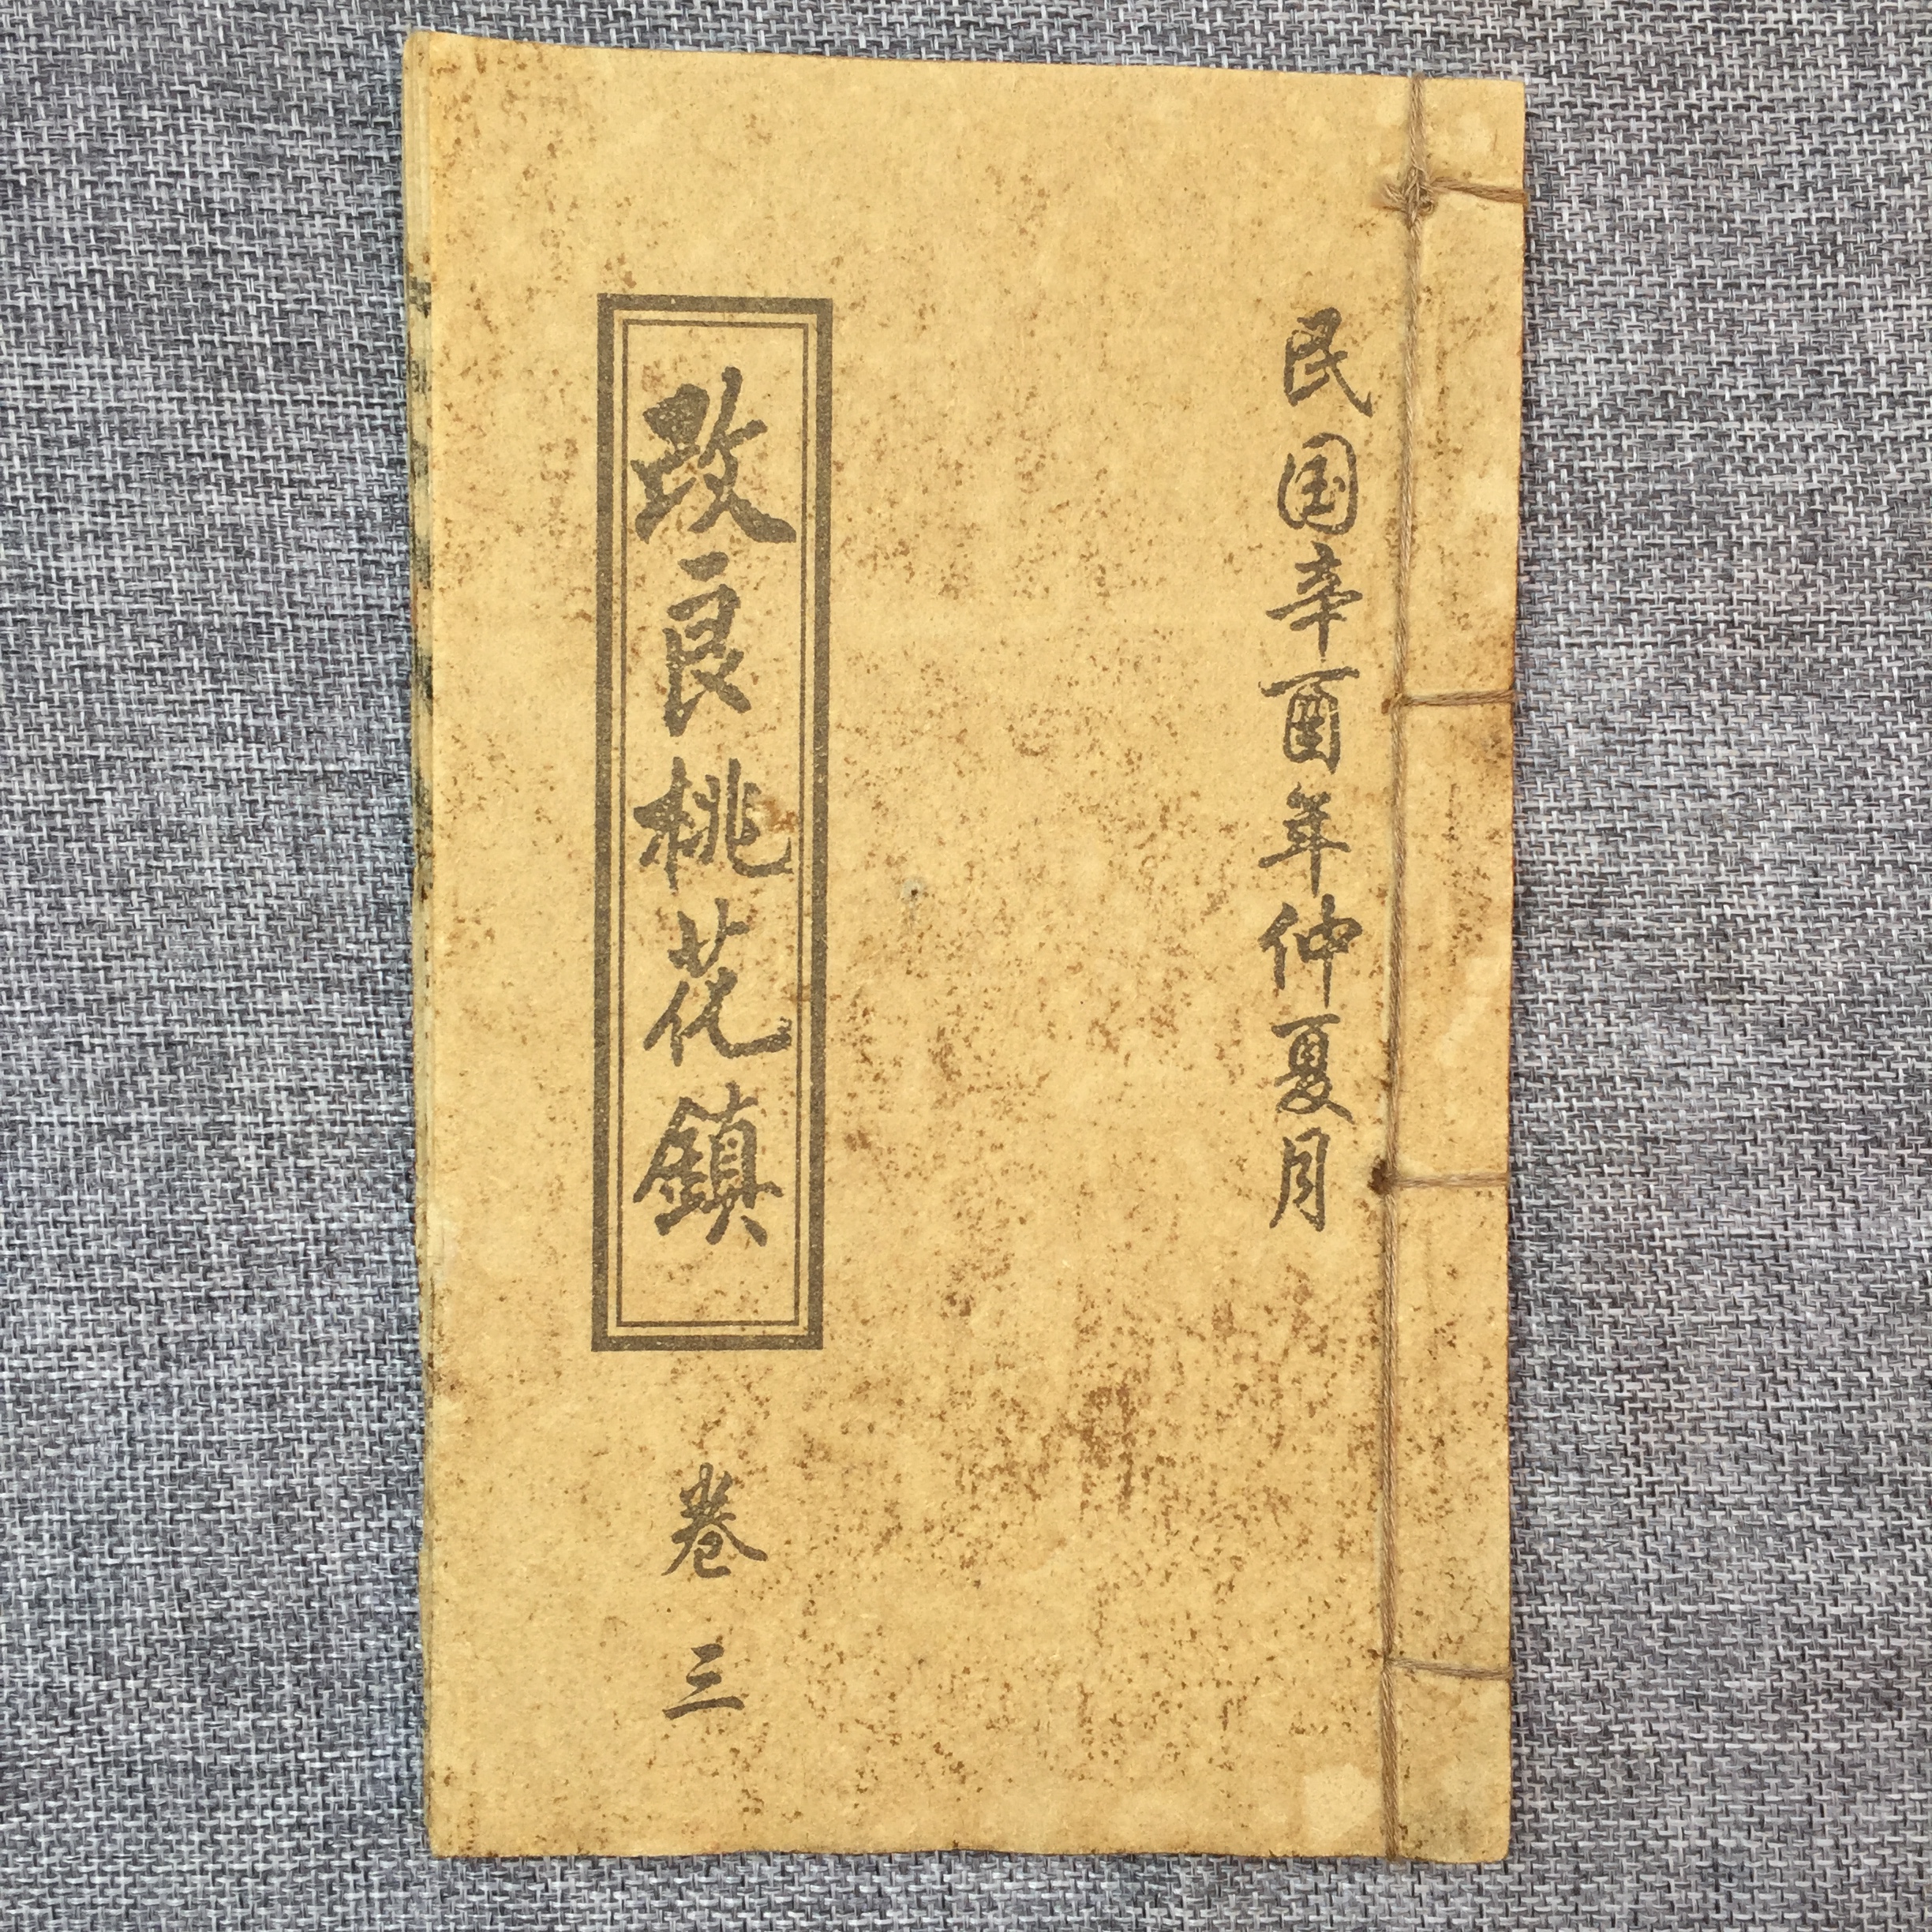 民国辛酉年仲夏月
改良桃花鎮
卷三